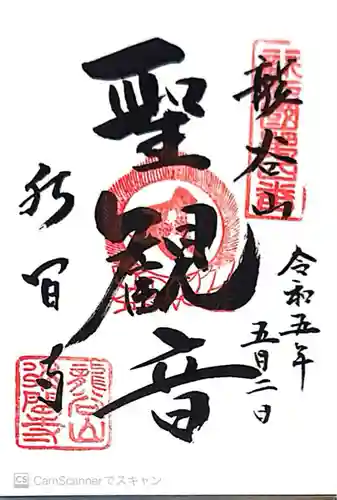 龍谷山
聖観音
令和五年
五月二日
龍谷山
CS CamScannerでスキャン